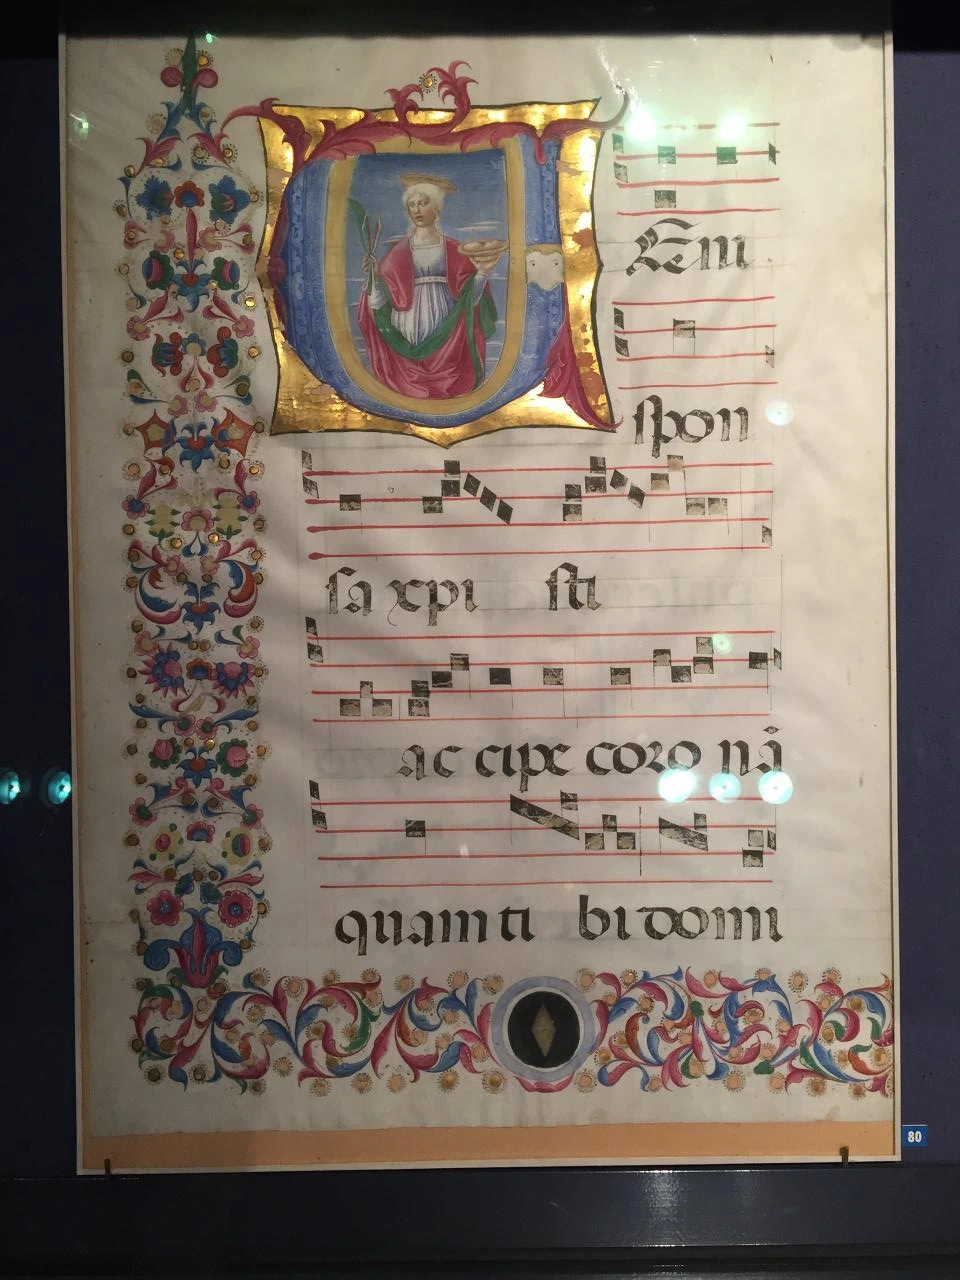 VEni
ſpon
ſa xpi ſti
ac cipe coro nā
quam ti bi domi
80